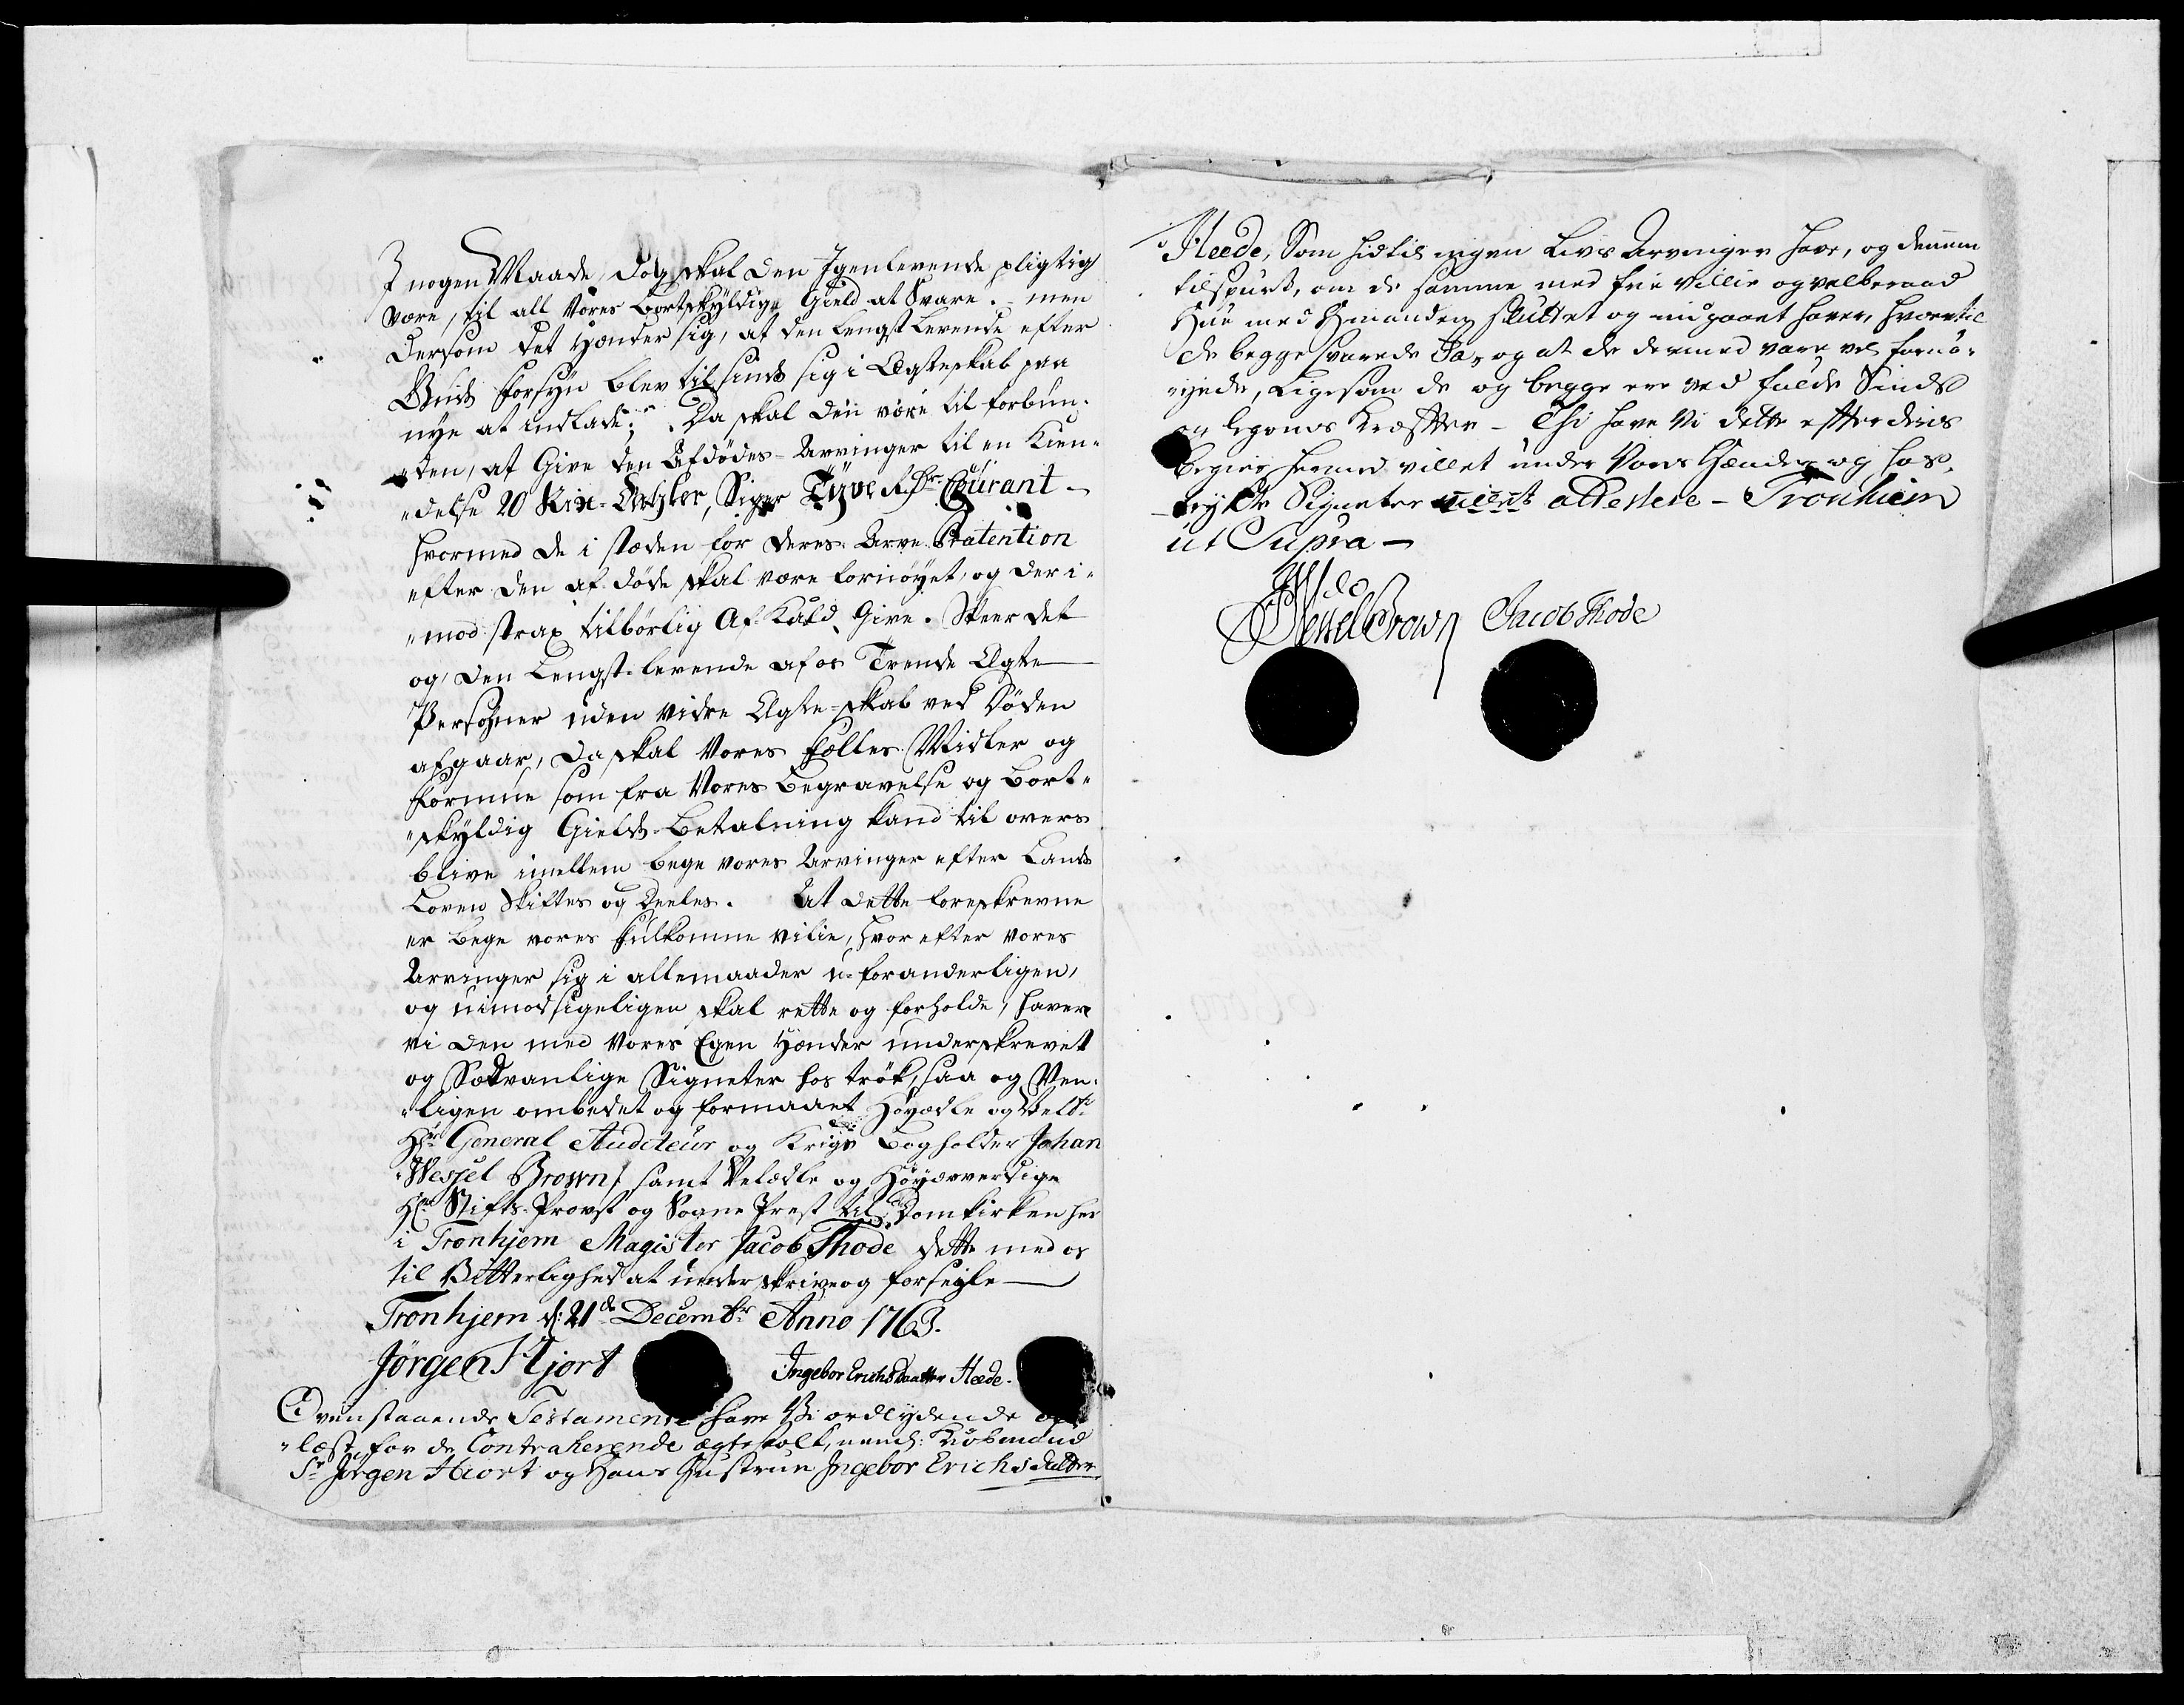 I nogen Maade, dog skal den Igenlevende pligtig
være, til all Vores bortskyldige Gield at Svare. men
dersom det hender sig, at den lengst Levende efter
Guds forsyn blev til sinds sig i Ægteskab paa
nye at indlade; Da skal den være til forbun¬
den, at Give den Afdødes Arvinger til en Kien¬
delse 20 Rix-Daler, Siger Tyve Rdr Courant
hvormed de i stæden for deres Arve Prætention
efter den af døde skal være fornøyet, og der i¬
mod strax tilbørlig Af Kald Give. Skeer det
og, den Lengst-levende af os Tvende Ægte
Personer uden vidre Ægte-skab ved Døden
afgaar, Da skal Vores Fælles Midler og
Formue som fra Vores Begravelse og Bort¬
skyldig Gields Betalning kand til overs
blive imellem bege vores Arvinger efter Lands
Loven Skiftes og Deeles. At dette foreskrevne
er bege vores Fulkomne vilie, hvor efter vores
Arvinger sig i allemaader u-foranderligen,
og uimodsigeligen skal rette og forholde, haver
vi den med Vores Egen Hænder underskrevet
og Sædvanlige Signeter hos trøkt, saa og Ven¬
ligen ombedet og formaaet Høyædle og Velb:
Hr General Auditeur og Krigs Bogholder Johan
Wessel Brown, samt Velædle og Høyærverdige
Hr Stifts-Provst og Sogne Prest til Domkirken her
i Tronhjem Magister Jacob Thode dette med os
til Vitterlighed at underskrive og forseigle
Tronhjem d: 21de Decembr Anno 1763.
Jörgen Hjort Ingebor Erichsdaatter Heede.
Ovenstaaende Testamente have Vi ordlydende op¬
læst for de Contraherende ægtefolk, nemlig: Kiøbmand
Sr Jörgen Hiort og Hans Hustrue Ingebor Erichsdatter
Heede, Som hidtil ingen Livs Arvinger have, og dennem
tilspurt, om de samme med frie villie og velberaad
Hue med hinanden sluttet og indgaaet haver, hvortil
de begge svarede Ja, og at de dermed vare vel fornø¬
yede, Ligesom de og begge ere ved fulde Sinds
og legoms Kræfter - Thi have Vi dette efter deris
begiær hermed villet under Vores Hænder og hos¬
trykte Signeter attestere - Tronhiem
ut Supra
JWessel Brown Jacob Thode